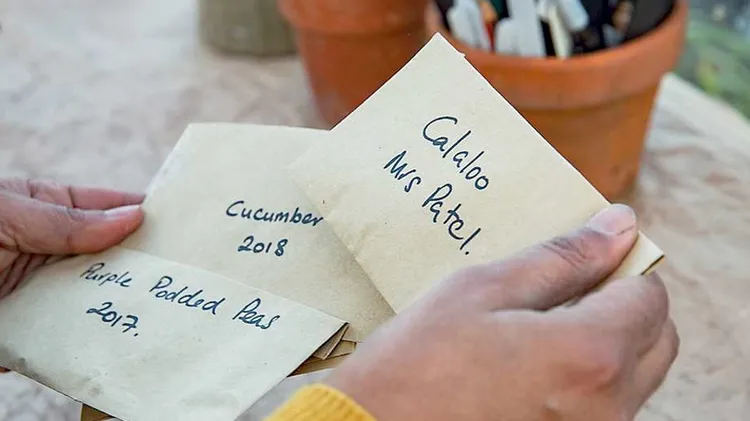 Calaloo
Mrs Patel.
Cucumber
2018
Purple Podded Peas
2017.